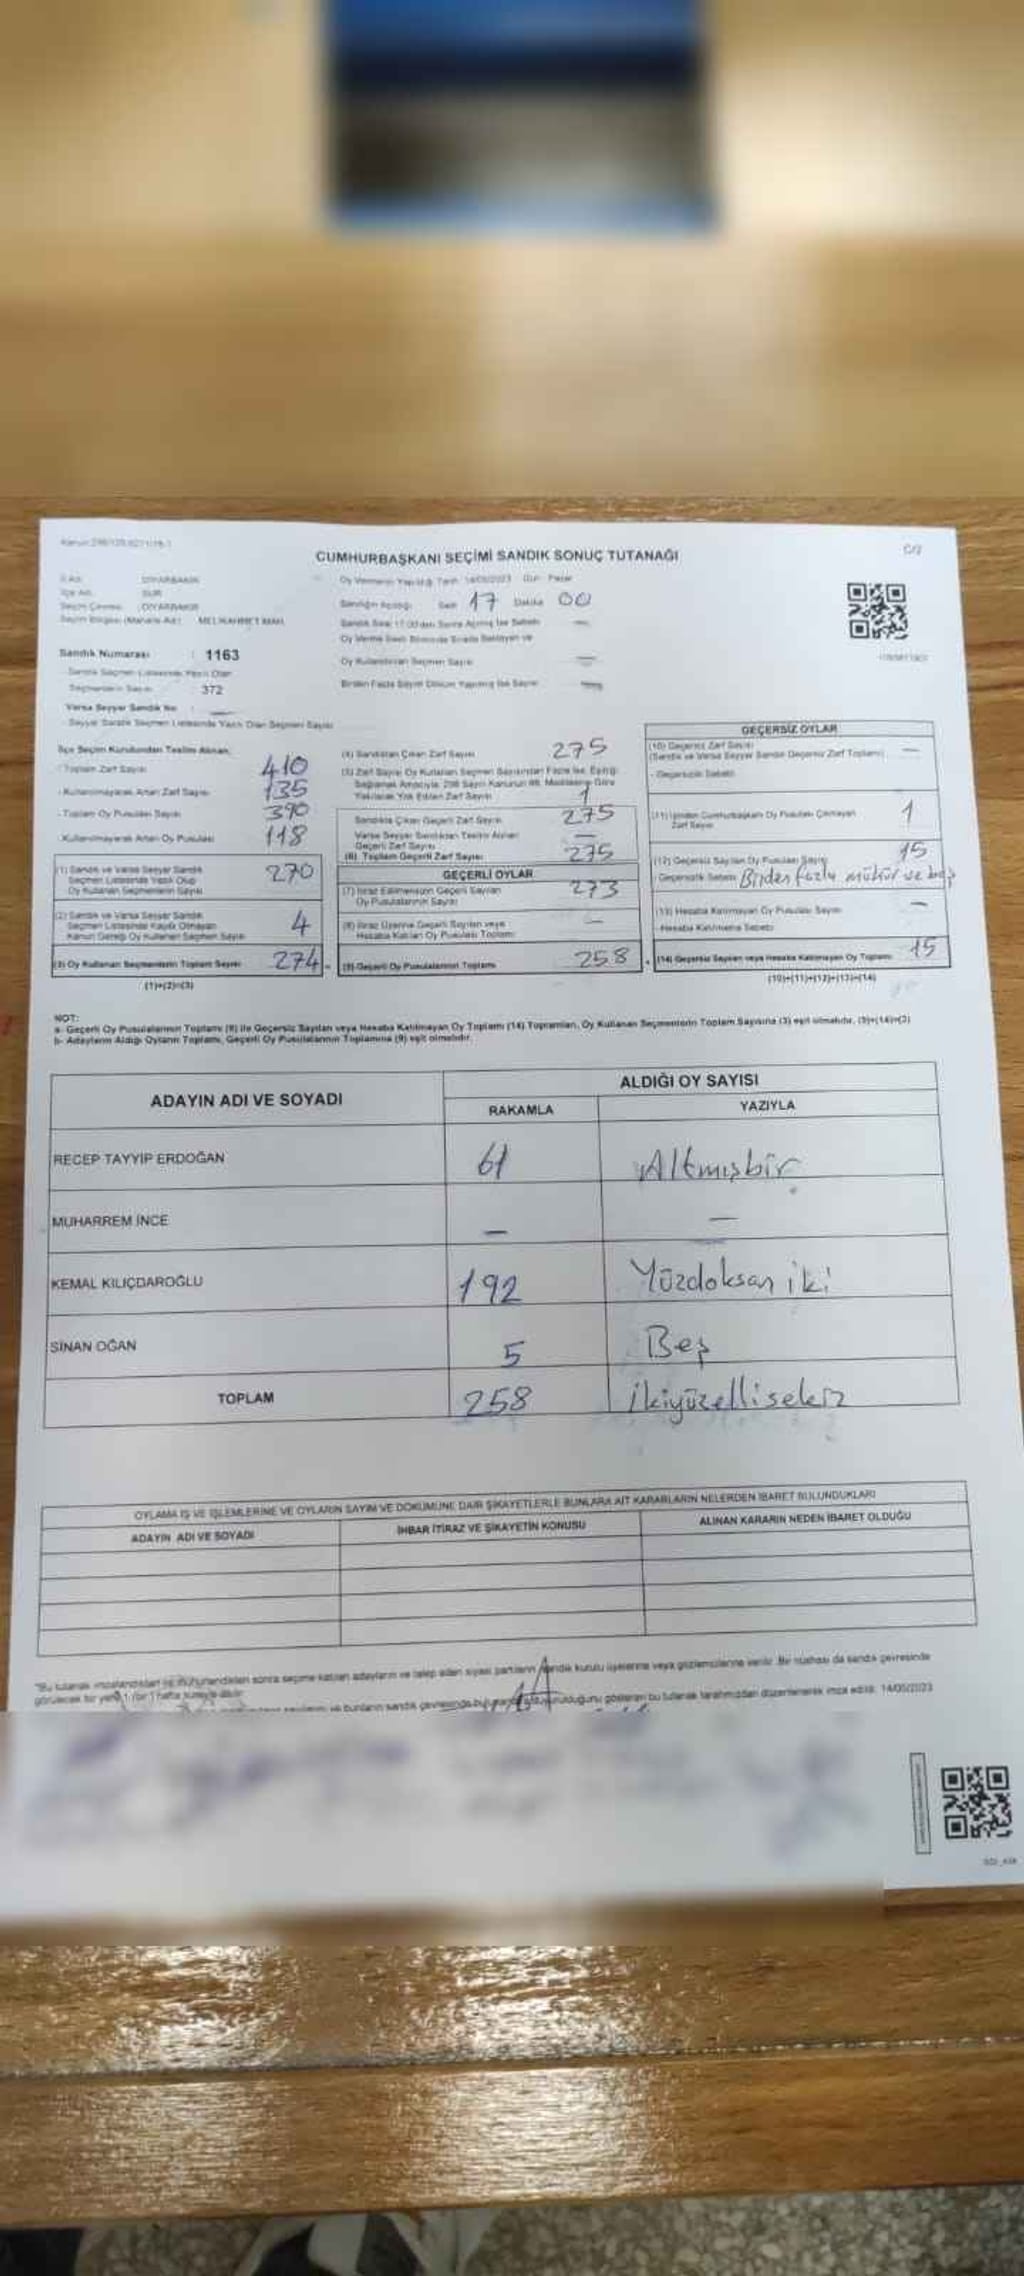 CUMHURBAŞKANI SEÇİMİ SANDIK SONUÇ TUTANAĞI
C/2
İl Adı: DİYARBAKIR
İlçe Adı: SUR
Seçim Çevresi: DİYARBAKIR
Seçim Bölgesi (Mahalle Adı): MELİKAHMET MAH.
Sandık Numarası : 1163
Sandık Seçmen Listesinde Yazılı Olan
Seçmenlerin Sayısı 372
Varsa Seyyar Sandık No : —
Seyyar Sandık Seçmen Listesinde Yazılı Olan Seçmen Sayısı
Oy Vermenin Yapıldığı Tarih: 14/05/2023 Gün: Pazar
Sandığın Açıldığı: Saat 17 Dakika 00
Sandık Saat 17:00'den Sonra Açılmış İse Sebebi —
Oy Verme Saati Bitiminde Sırada Bekleyen ve
Oy Kullandırılan Seçmen Sayısı —
Birden Fazla Sayım Döküm Yapılmış İse Sayısı —
İlçe Seçim Kurulundan Teslim Alınan;
- Toplam Zarf Sayısı 410
- Kullanılmayarak Artan Zarf Sayısı 135
- Toplam Oy Pusulası Sayısı 390
- Kullanılmayarak Artan Oy Pusulası 118
(1) Sandık ve Varsa Seyyar Sandık
Seçmen Listesinde Yazılı Olup
Oy Kullanan Seçmenlerin Sayısı 270
(2) Sandık ve Varsa Seyyar Sandık
Seçmen Listesinde Kayıtlı Olmayan
Kanun Gereği Oy Kullanan Seçmen Sayısı 4
(3) Oy Kullanan Seçmenlerin Toplam Sayısı 274
(1)+(2)=(3)
(4) Sandıktan Çıkan Zarf Sayısı 275
(5) Zarf Sayısı Oy Kullanan Seçmen Sayısından Fazla İse, Eşitliği
Sağlamak Amacıyla 298 Sayılı Kanunun 98. Maddesine Göre
Yakılarak Yok Edilen Zarf Sayısı 1
Sandıkta Çıkan Geçerli Zarf Sayısı 275
Varsa Seyyar Sandıktan Teslim Alınan
Geçerli Zarf Sayısı —
(6) Toplam Geçerli Zarf Sayısı 275
GEÇERLİ OYLAR
(7) İtiraz Edilmeksizin Geçerli Sayılan
Oy Pusulalarının Sayısı 273
(8) İtiraz Üzerine Geçerli Sayılan veya
Hesaba Katılan Oy Pusulası Toplamı —
(9) Geçerli Oy Pusulalarının Toplamı 258
GEÇERSİZ OYLAR
(10) Geçersiz Zarf Sayısı
(Sandık ve Varsa Seyyar Sandık Geçersiz Zarf Toplamı) —
- Geçersizlik Sebebi
(11) İçinden Cumhurbaşkanı Oy Pusulası Çıkmayan
Zarf Sayısı 1
(12) Geçersiz Sayılan Oy Pusulası Sayısı 15
- Geçersizlik Sebebi Birden fazla mühür ve boş
(13) Hesaba Katılmayan Oy Pusulası Sayısı —
- Hesaba Katılmama Sebebi
(14) Geçersiz Sayılan veya Hesaba Katılmayan Oy Toplamı 15
(10)+(11)+(12)+(13)=(14)
NOT:
a- Geçerli Oy Pusulalarının Toplamı (9) ile Geçersiz Sayılan veya Hesaba Katılmayan Oy Toplamı (14) Toplamları, Oy Kullanan Seçmenlerin Toplam Sayısına (3) eşit olmalıdır. (9)+(14)=(3)
b- Adayların Aldığı Oyların Toplamı, Geçerli Oy Pusulalarının Toplamına (9) eşit olmalıdır.
ADAYIN ADI VE SOYADI
ALDIĞI OY SAYISI
RAKAMLA YAZIYLA
RECEP TAYYİP ERDOĞAN 61 Altmışbir
MUHARREM İNCE — —
KEMAL KILIÇDAROĞLU 192 Yüzdoksan iki
SİNAN OĞAN 5 Beş
TOPLAM 258 İkiyüzellisekiz
OYLAMA İŞ VE İŞLEMLERİNE VE OYLARIN SAYIM VE DÖKÜMÜNE DAİR ŞİKAYETLERLE BUNLARA AİT KARARLARIN NELERDEN İBARET BULUNDUKLARI
ADAYIN ADI VE SOYADI İHBAR İTİRAZ VE ŞİKAYETİN KONUSU ALINAN KARARIN NEDEN İBARET OLDUĞU
"Bu tutanak imzalandıktan ve mühürlendikten sonra seçime katılan adayların ve talep eden siyasi partilerin sandık kurulu üyelerine veya gözlemcilerine verilir. Bir nüshası da sandık çevresinde
görülecek bir yere 1 (bir) hafta süreyle asılır.
bunların sandık çevresinde gösteren bu tutanak tarafımızdan düzenlenerek imza edildi. 14/05/2023